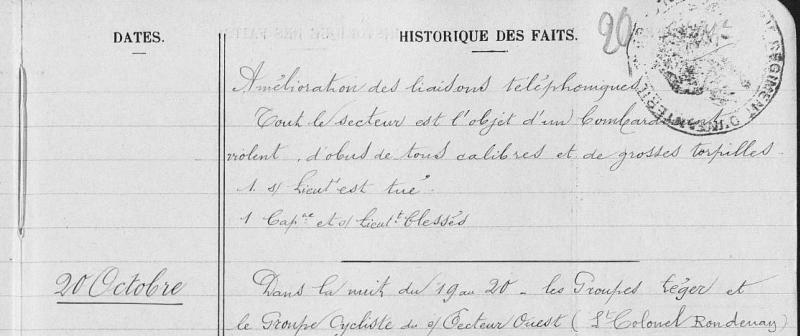 DATES.
HISTORIQUE DES FAITS.
20
RÉGIMENT D'INFANTERIE
Amélioration des liaisons téléphoniques
Tout le secteur est l'objet d'un bombardement
violent, d'obus de tous calibres et de grosses torpilles.
1 s/ Lieut est tué
1 Capne et s/ Lieutt blessés
20 Octobre
Dans la nuit du 19 au 20 - les Groupes léger et
le Groupe Cycliste du s/ Secteur Ouest (Lt Colonel Rondenay)